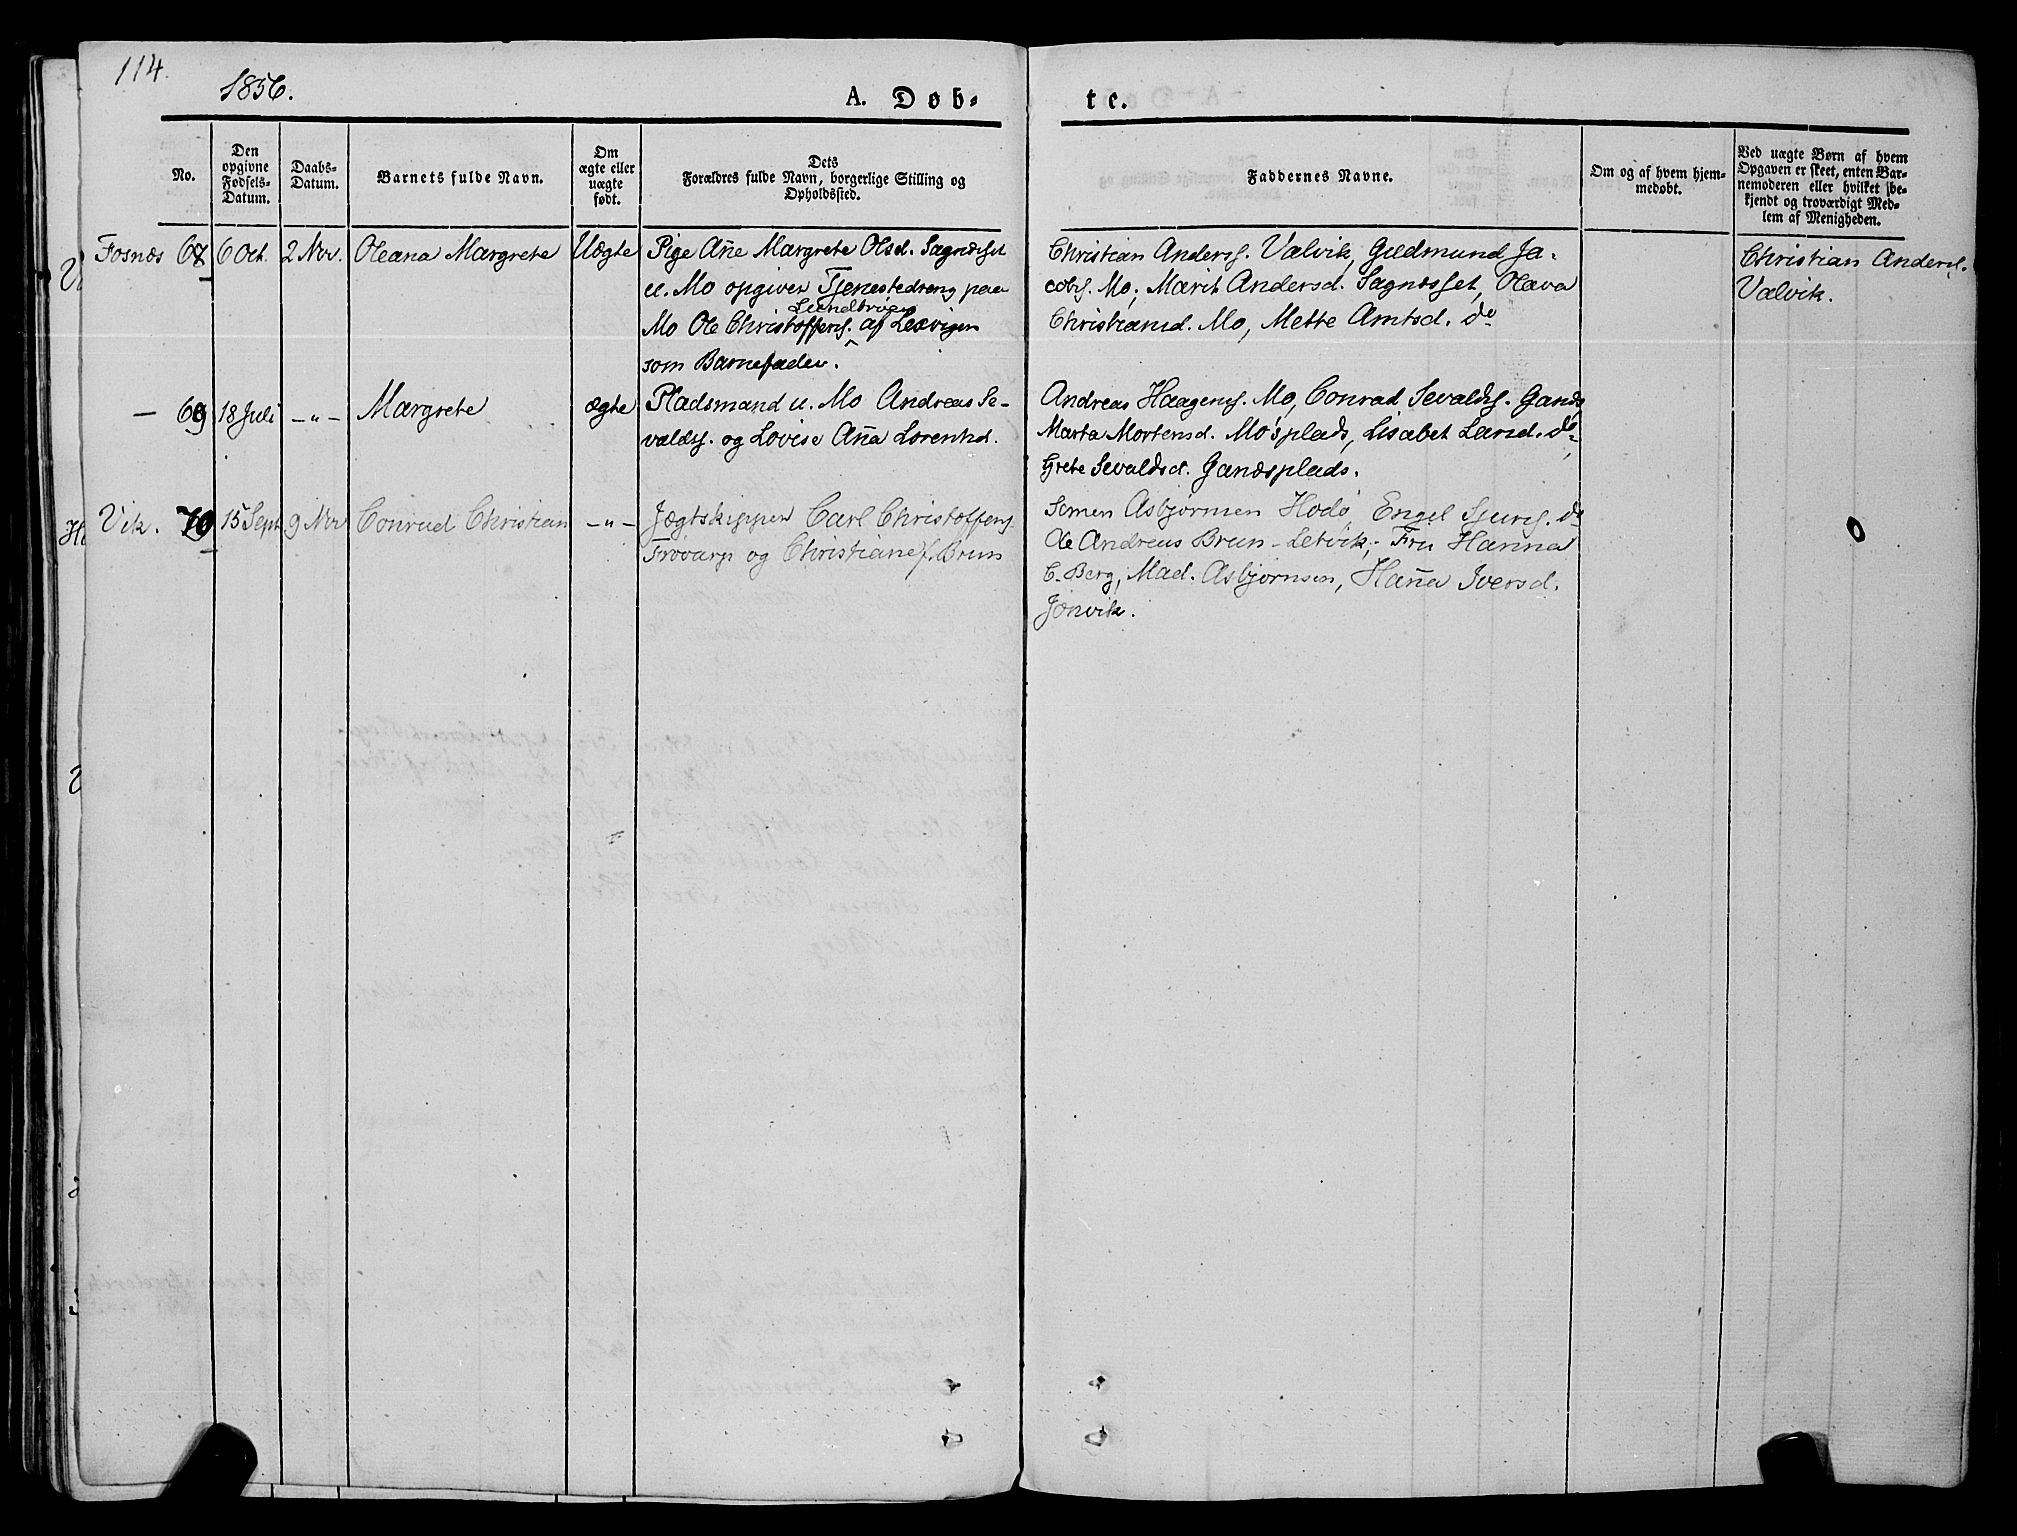 114.
1856.
A. Døb-
te.
No.
Den opgivne Fødsels-Datum.
Daabs-Datum.
Barnets fulde Navn.
Om ægte eller uægte født.
Dets
Forældres fulde Navn, borgerlige Stilling og
Opholdssted.
Faddernes Navne.
Om og af hvem hjem-
medøbt.
Ved uægte Børn af hvem
Opgaven er skeet, enten Bar-
nemoderen eller hvilket be-
kjendt og troværdigt Med-
lem af Menigheden.
Fosnæs 6 Oct. 2 Nov. Oleana Margrete Uægte
Pige Ane Margrete Olsd.
u. Mo opgiver Tjenestedreng paa
Mo Ole Christoffers. af
som Barnefader.
Christian Anders. Valvik, Guldmund Ja-
cobs. Mo, Marit Andersd. Olava
Christiansd. Mo, Mette Amtsd. do
Christian Anders.
Valvik.
— 69 18 Juli —"— Margrete ægte
Pladsmand u. Mo Andreas Se-
valds. og Lovise Ana Lorentsd.
Andreas Haagens. Mo, Conrad Sevalds.
Marta Mortensd. Mo's plads, Lisabet Larsd. do
Grete Sevaldsd.
Vik. 70 15 Sept 9 Nov Conrad Christian —"—
Jægtskipper Carl Christoffers.
og Christiane f. Brun
Asbjørnsen Hodø Engel Sjurs. do
Ole Andreas Brun - Fru Hanna
C. Berg, Mad. Asbjørnsen, Hana Iversd.